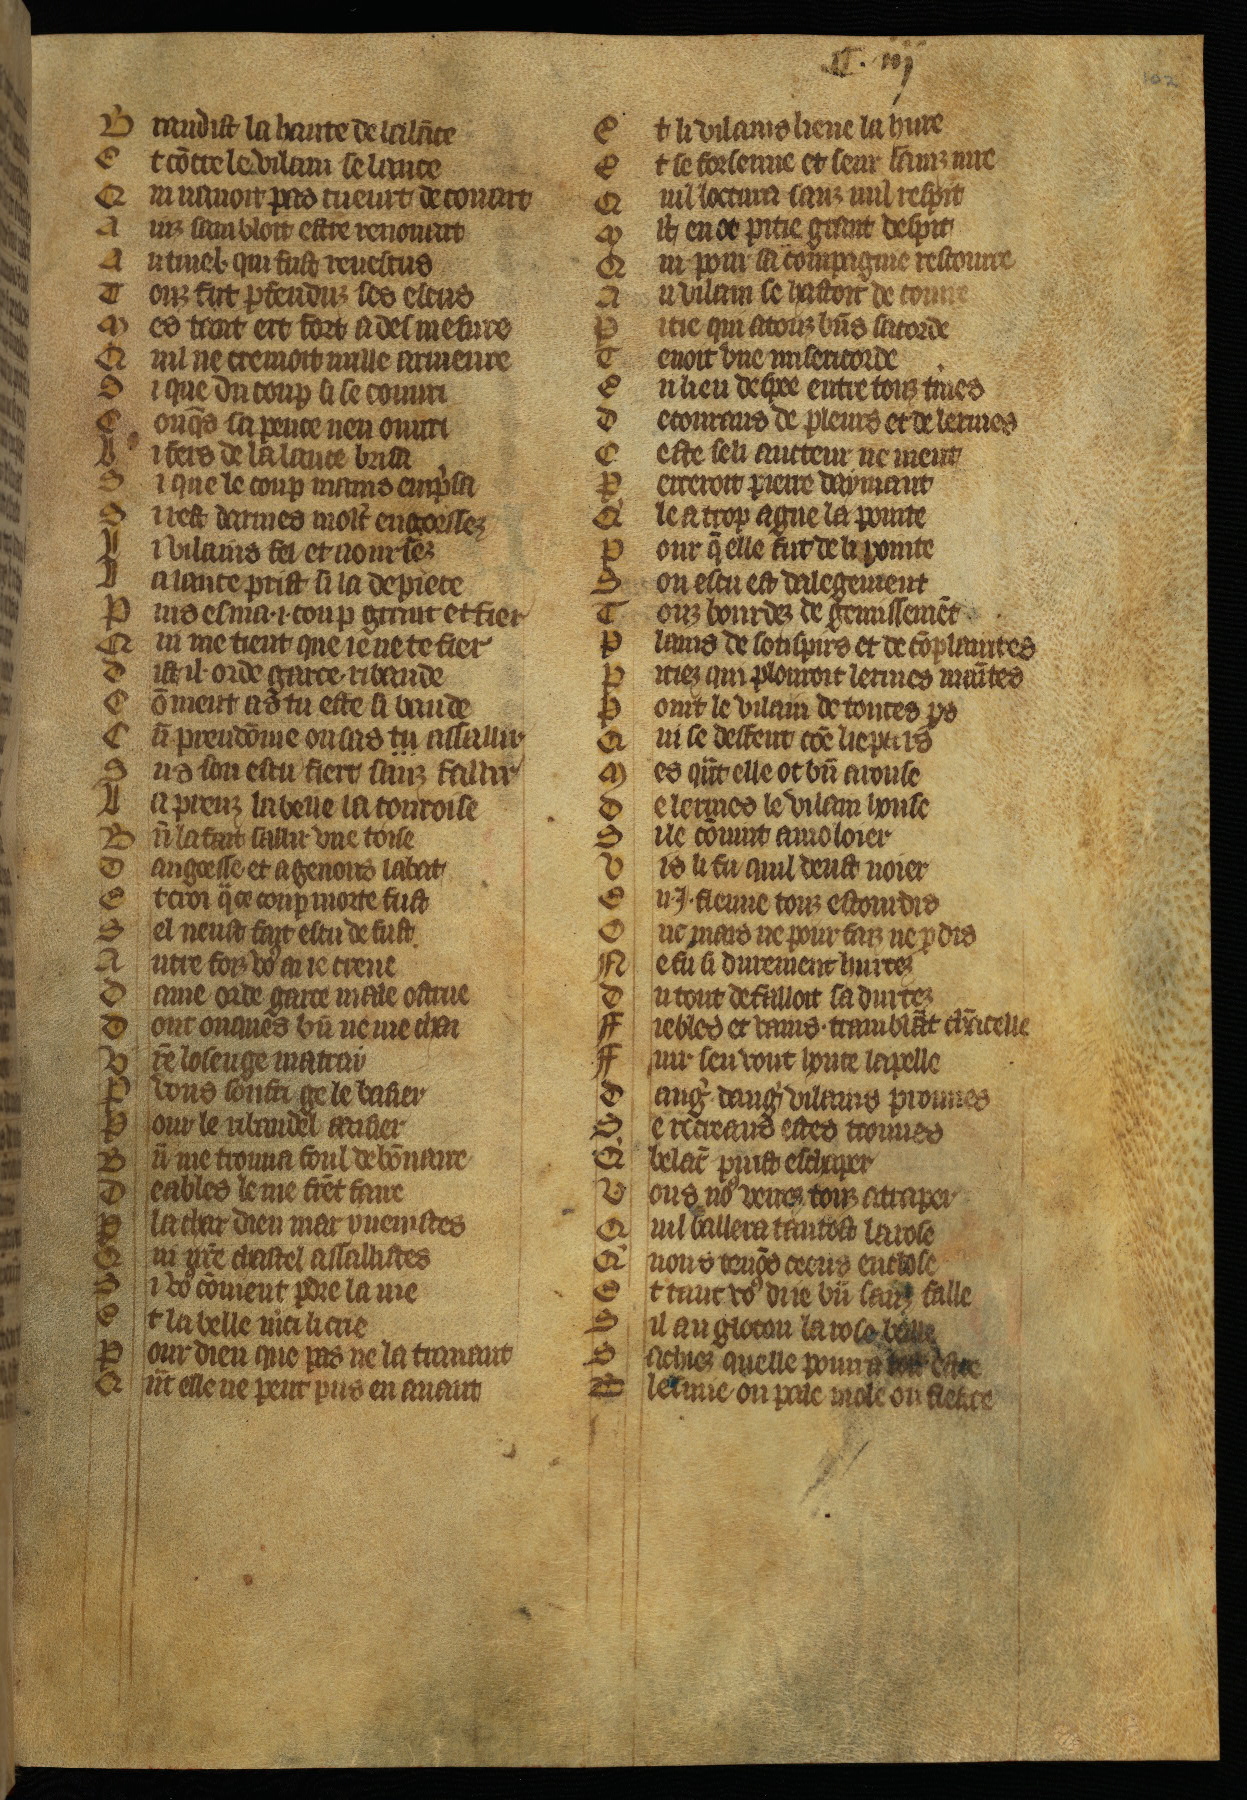 C. iiij
102
B randist la hante de la lāce
E t cōtre le vilain se lance
Q ui nauoit pas cueur de couart
A inz sambloit estre renouart
A u tinel qui fust reuescus
T ouz fut pfenduz ses escus
M es tant ert fort a desmesure
Q uil ne cremoit nulle armeure
S i que du coup si se couuri
C onqs sa pence nen ouuri
L i fers de la lance brisa
S i que le coup mains emprisa
S i rest darmes molt engoissez
L i vilains fel et aoursez
L a lance prist si la depiece
P uis esma .i. coup grant et fier
Q ui me tient que ie ne te fier
D ist il orde garce ribaude
C ōment as tu este si baude
C ū preudōme osas tu assallir
S us son escu fiert sanz fallir
L a preuz la belle la cortoise
B ñ la fait sallir vne toise
D angoesse et a genous labat
E t croi q̄ ce coup morte fust
S el neust fait escu de fust
A utre foiz vo ai ie creue
D ame orde garce male ostrue
D ont onques bñ ne me chai
V rē losenge ma trai
P vous soufri ge le baisier
P our le ribaudel aaisier
B ñ me trouua foul debōnaire
D eables le me firēt faire
P la char dieu mar venistes
Q ui nrē chastel assallistes
S i vo conuient pdre la uie
E t la belle merci li crie
P our dieu que pas ne la trauant
Q ūt elle ne peut pus en auant
E t li vilains lieue la hure
E t se forsenne et seur sainz iure
Q uil loccirra sanz nul respit
M lt en ot pitie grant despit
Q ui pour sa compagnie rescourre
A u vilain se hastoit de courre
P itie qui a touz bñs sacorde
T enoit vne misericorde
E n lieu despee entre touz tmes
D ecourans de pleurs et de lermes
C este seli aucteur ne ment
P erceroit pierre daymant
Q le a trop ague la pointe
P our q̄ elle fut de li pointe
S on escu est dalegement
T ouz bourdez de gemissemēt
P lains de souspirs et de cōplaintes
P itiez qui plouroit lermes maītes
P oint le vilain de toutes ps
Q ui se deffent cōe liepars
M es qūt elle ot bñ arouse
D e lermes le vilain house
S i le cōuint amoloier
V is li fu quil deust noier
E n .I. fleuue touz estourdis
O nc mais ne pour faiz ne p dis
N e fu si durement hurtez
D u tout defalloit sa durtez
FF iebles et vains tramblāt chācelle
FF uir sen vout honte lapelle
D angr dangr vilains prouues
S e recreans estes trouues
Q belac̄ puist eschaper
V ous no verrez touz atraper
Q uil ballera tantost la rose
Q nous tenōs ceens enclose
E t tant vo die bñ sanz falle
S il au glocon la rose balle
S achiez quelle pourra tost estre
B lesmie ou pale mole ou flestre